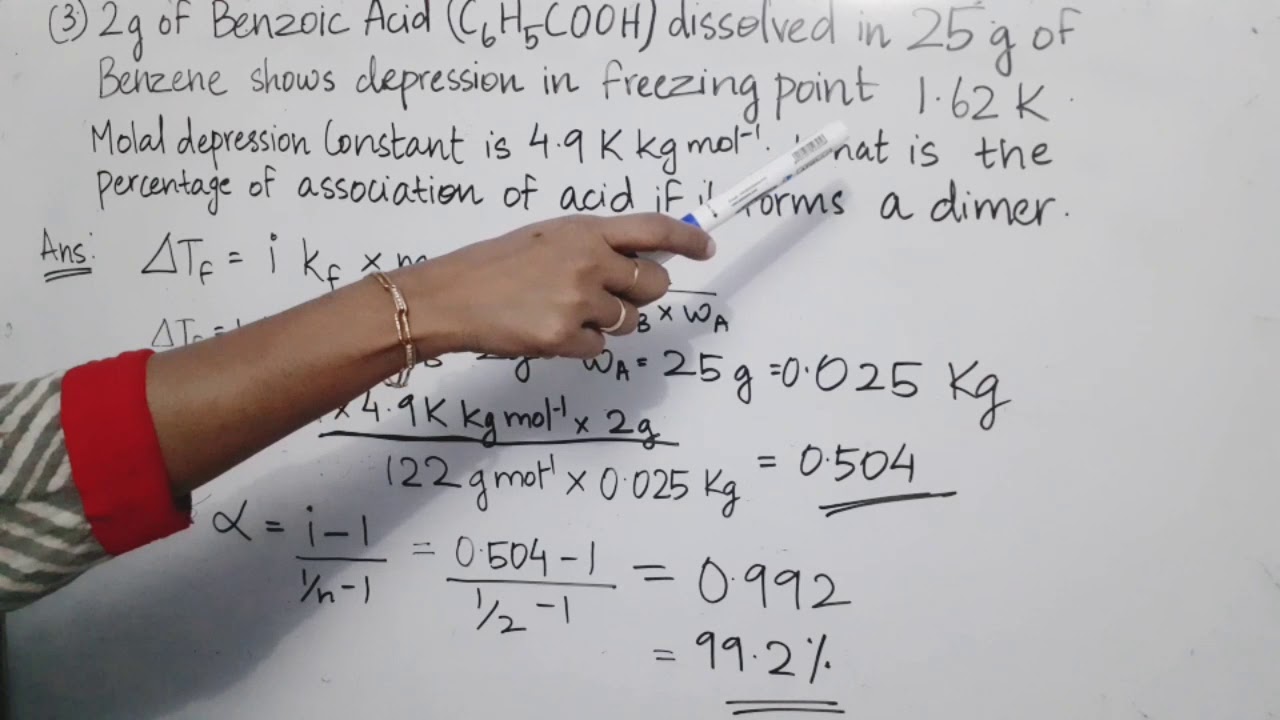 (3) 2g of Benzoic Acid (C₆H₅COOH) dissolved in 25 g of
Benzene shows depression in freezing point 1.62 K.
Molal depression Constant is 4.9 K kg mol⁻¹. is the
percentage of association of acid if forms a dimer.
Ans: ΔT_f = i k_f ×
B × W_A
2g W_A = 25 g = 0.025 Kg
× 4.9 K kg mol⁻¹ × 2g
122 g mol⁻¹ × 0.025 Kg = 0.504
α = i – 1 / 1/n – 1 = 0.504 – 1 / 1/2 – 1 = 0.992
= 99.2 %